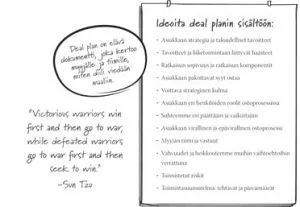 Deal plan on elävä
dokumentti, joka kertoo
myyjälle ja tiimille,
miten diili viedään
maaliin.
"Victorious warriors win
first and then go to war,
while defeated warriors
go to war first and then
seek to win."
–Sun Tzu
Ideoita deal planin sisältöön:
- Asiakkaan strategia ja taloudelliset tavoitteet
- Tavoitteet ja liiketoimintaan liittyvät haasteet
- Ratkaisun sopivuus ja ratkaisun komponentit
- Asiakkaan pakottavat syyt ostaa
- Voittava strateginen kulma
- Asiakkaan eri henkilöiden roolit ostoprosessissa
- Suhteemme eri päättäjiin ja vaikuttajiin
- Asiakkaan virallinen ja epävirallinen ostoprosessi
- Myyntitiimin rooli ja vastuut
- Vahvuudet ja heikkoutemme muihin vaihtoehtoihin
verrattuna
- Tunnistetut riskit
- Toimintasuunnitelma: tehtävät ja päivämäärät